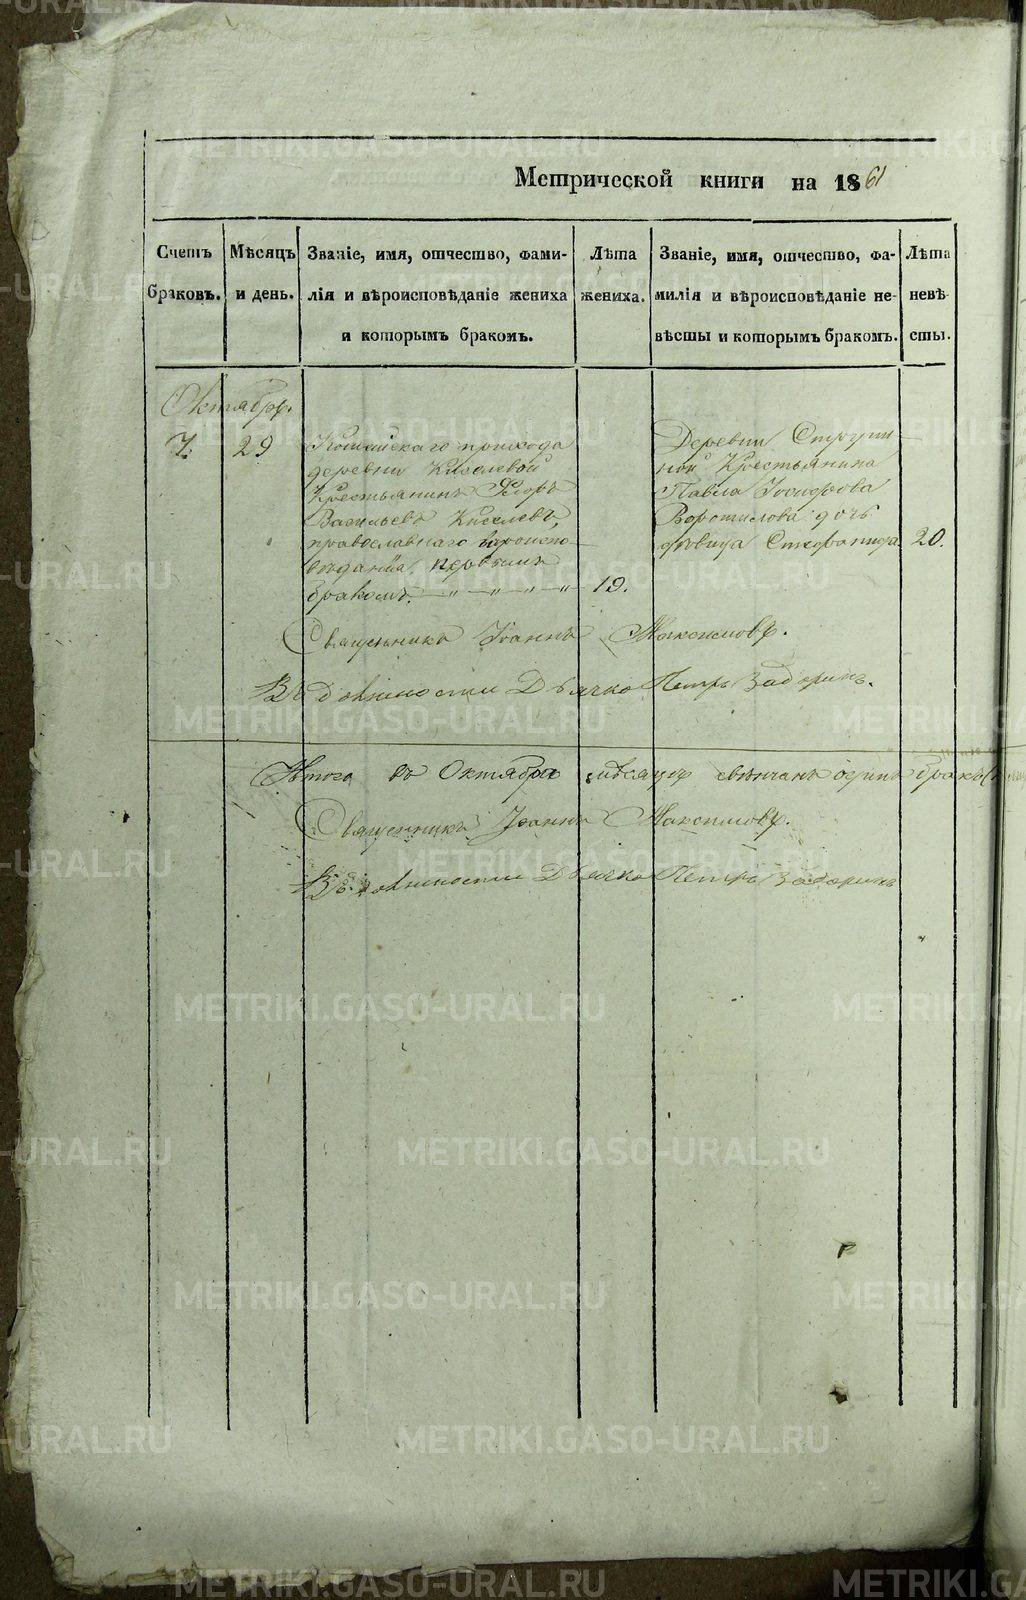 Метрической книги на 1861
Счетъ браковъ.
Мѣсяцъ и день.
Званіе, имя, отчество, фами-
лія и вѣроисповѣданіе жениха
и которымъ бракомъ.
Лѣта жениха.
Званіе, имя, отчество, фа-
милія и вѣроисповѣданіе не-
вѣсты и которымъ бракомъ.
Лѣта невѣ-
сты.
Октябрь.
7. 29
прихода
деревни Киселевой
Крестьянинъ Ѳедоръ
Васильевъ Киселевъ,
православнаго вѣроиспо-
вѣданія, первымъ
бракомъ. — „ — „ — „ — „ — 19.
Деревни
Крестьянина
Павла Іосифова
Ворошилова дочь
дѣвица Стефанида 20.
Священникъ Іоаннъ Максимовъ.
Въ должности Дьячка Петръ Задоринъ.
Итого въ Октябрѣ мѣсяцѣ свѣнчанъ одинъ бракъ
Священникъ Іоаннъ Максимовъ.
Въ должности Дьячка Петръ Задоринъ
METRIKI.GASO-URAL.RU